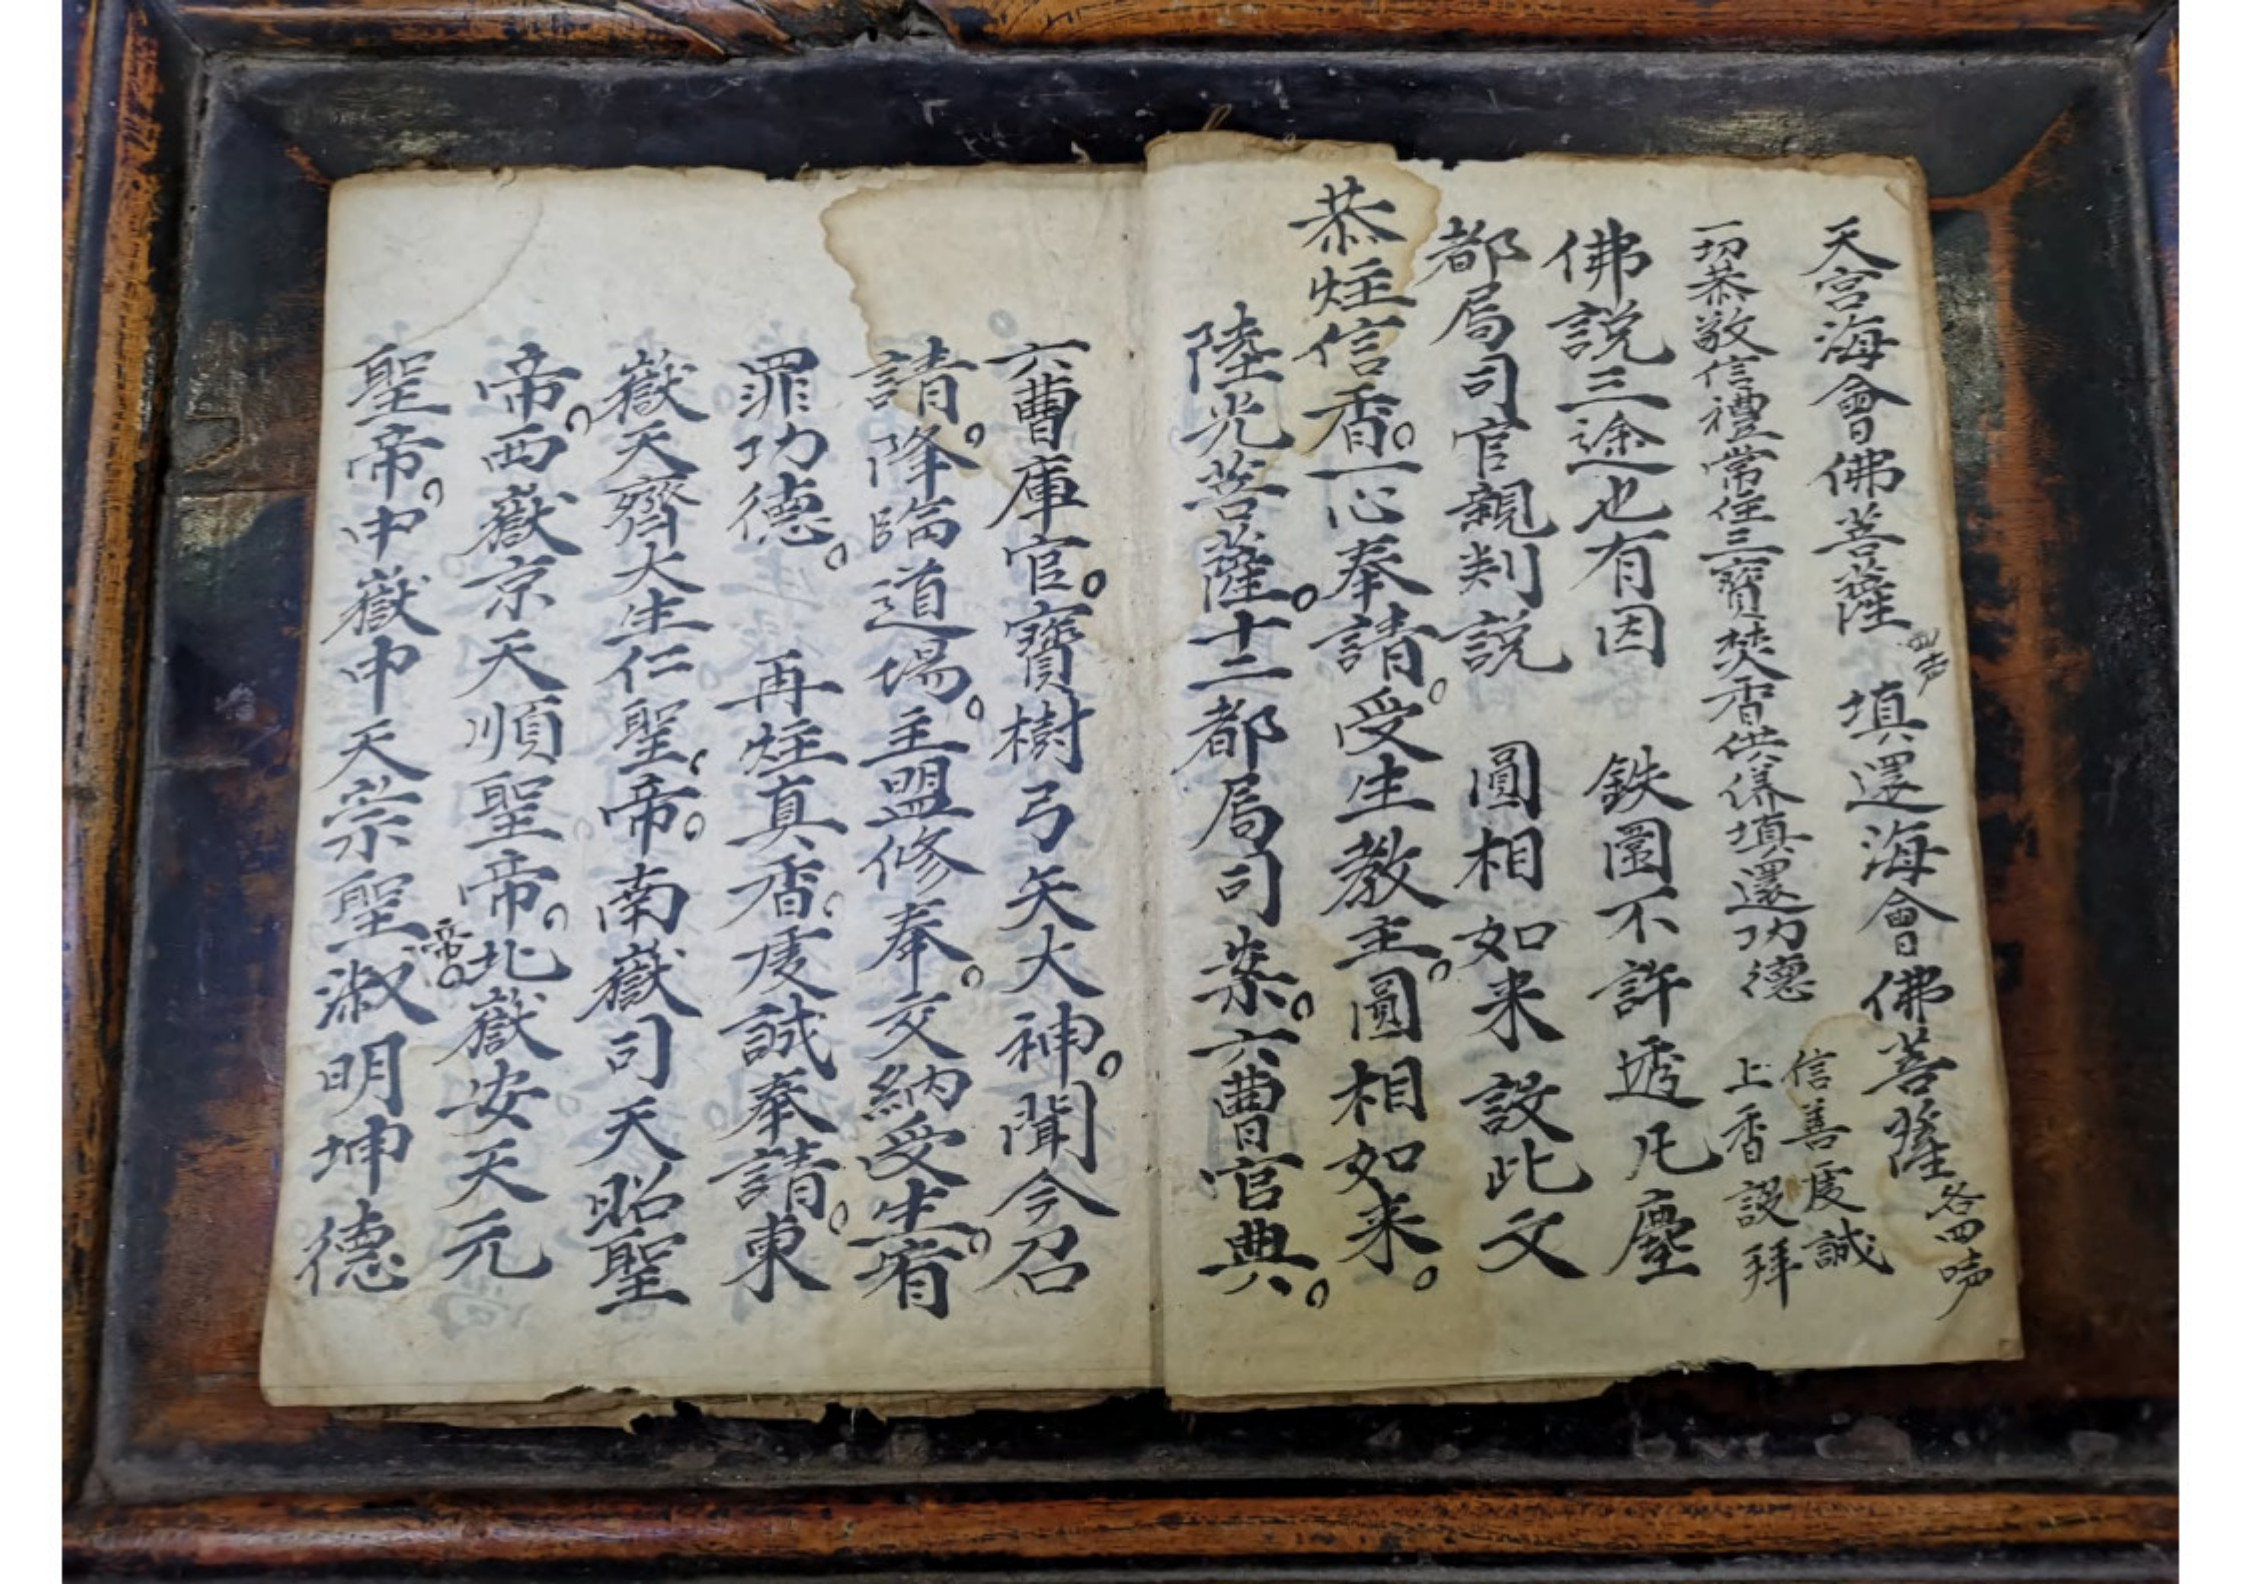 天宮海會佛菩薩 四声 填還海會佛菩薩 各四声
一切恭敬信禮常住三寶焚香供養填還功德 信善虔誠
上香設拜
佛説三途也有因 鉄圍不許透凡塵
都局司官親判説 圓相如来設此文
恭炷信香。一心奉請。受生教主。圓相如来。
陸光菩薩。十二都局司案。六曹官典。
六曹庫官。寳樹弓矢大神。聞今召
請。降臨道場。主盟修奉。交納受生。宥
罪功德。 再炷真香。虔誠奉請。東
嶽天齊大生仁聖帝。南嶽司天昭聖
帝。西嶽京天順聖帝。北嶽安天元
聖帝。中嶽中天崇聖帝。淑明坤德